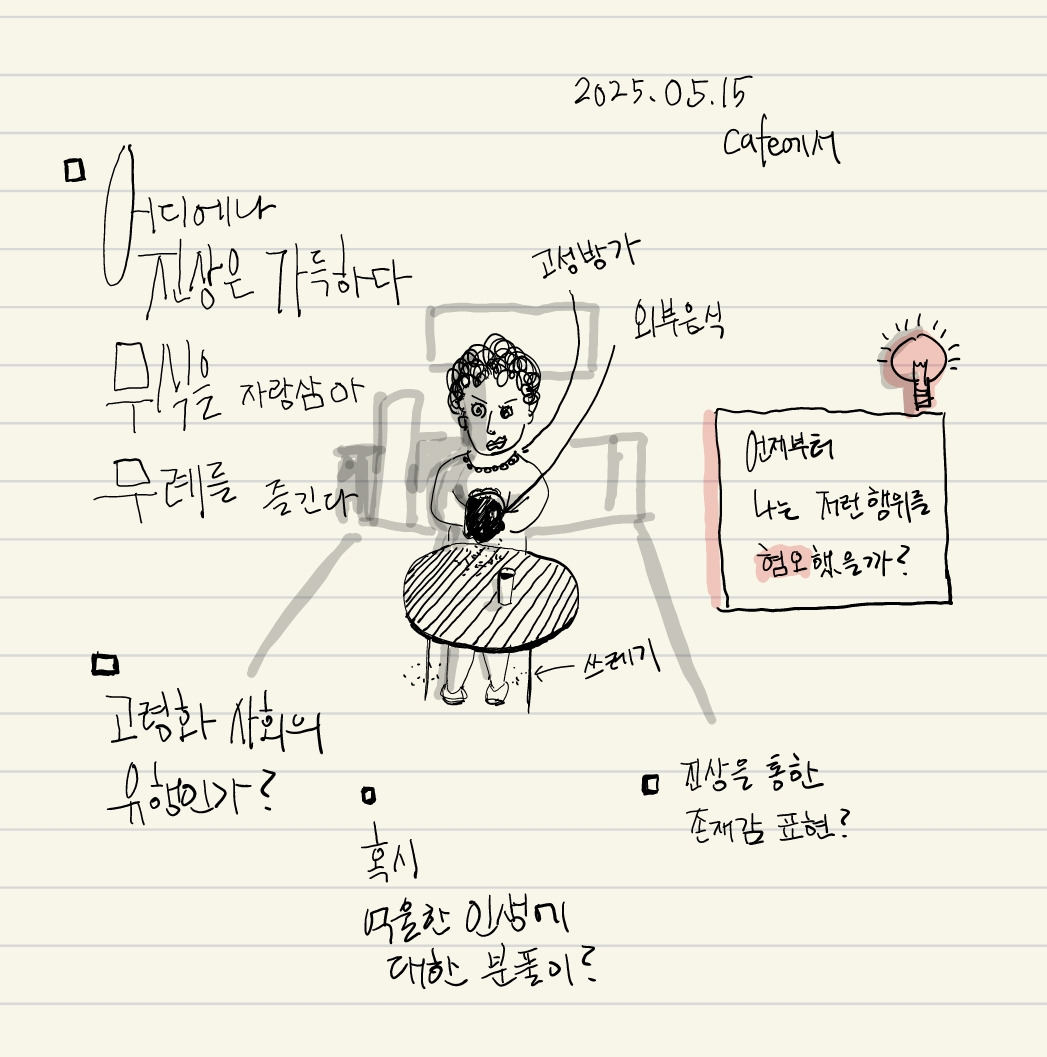 2025.05.15
Cafe에서
어디에나
진상은 가득하다
무식을 자랑삼아
무례를 즐긴다
고성방가
외부음식
언제부터
나는 저런 행위를
혐오했을까?
쓰레기
고령화 사회의
유행인가?
혹시
억울한 인생에
대한 분풀이?
진상을 통한
존재감 표현?